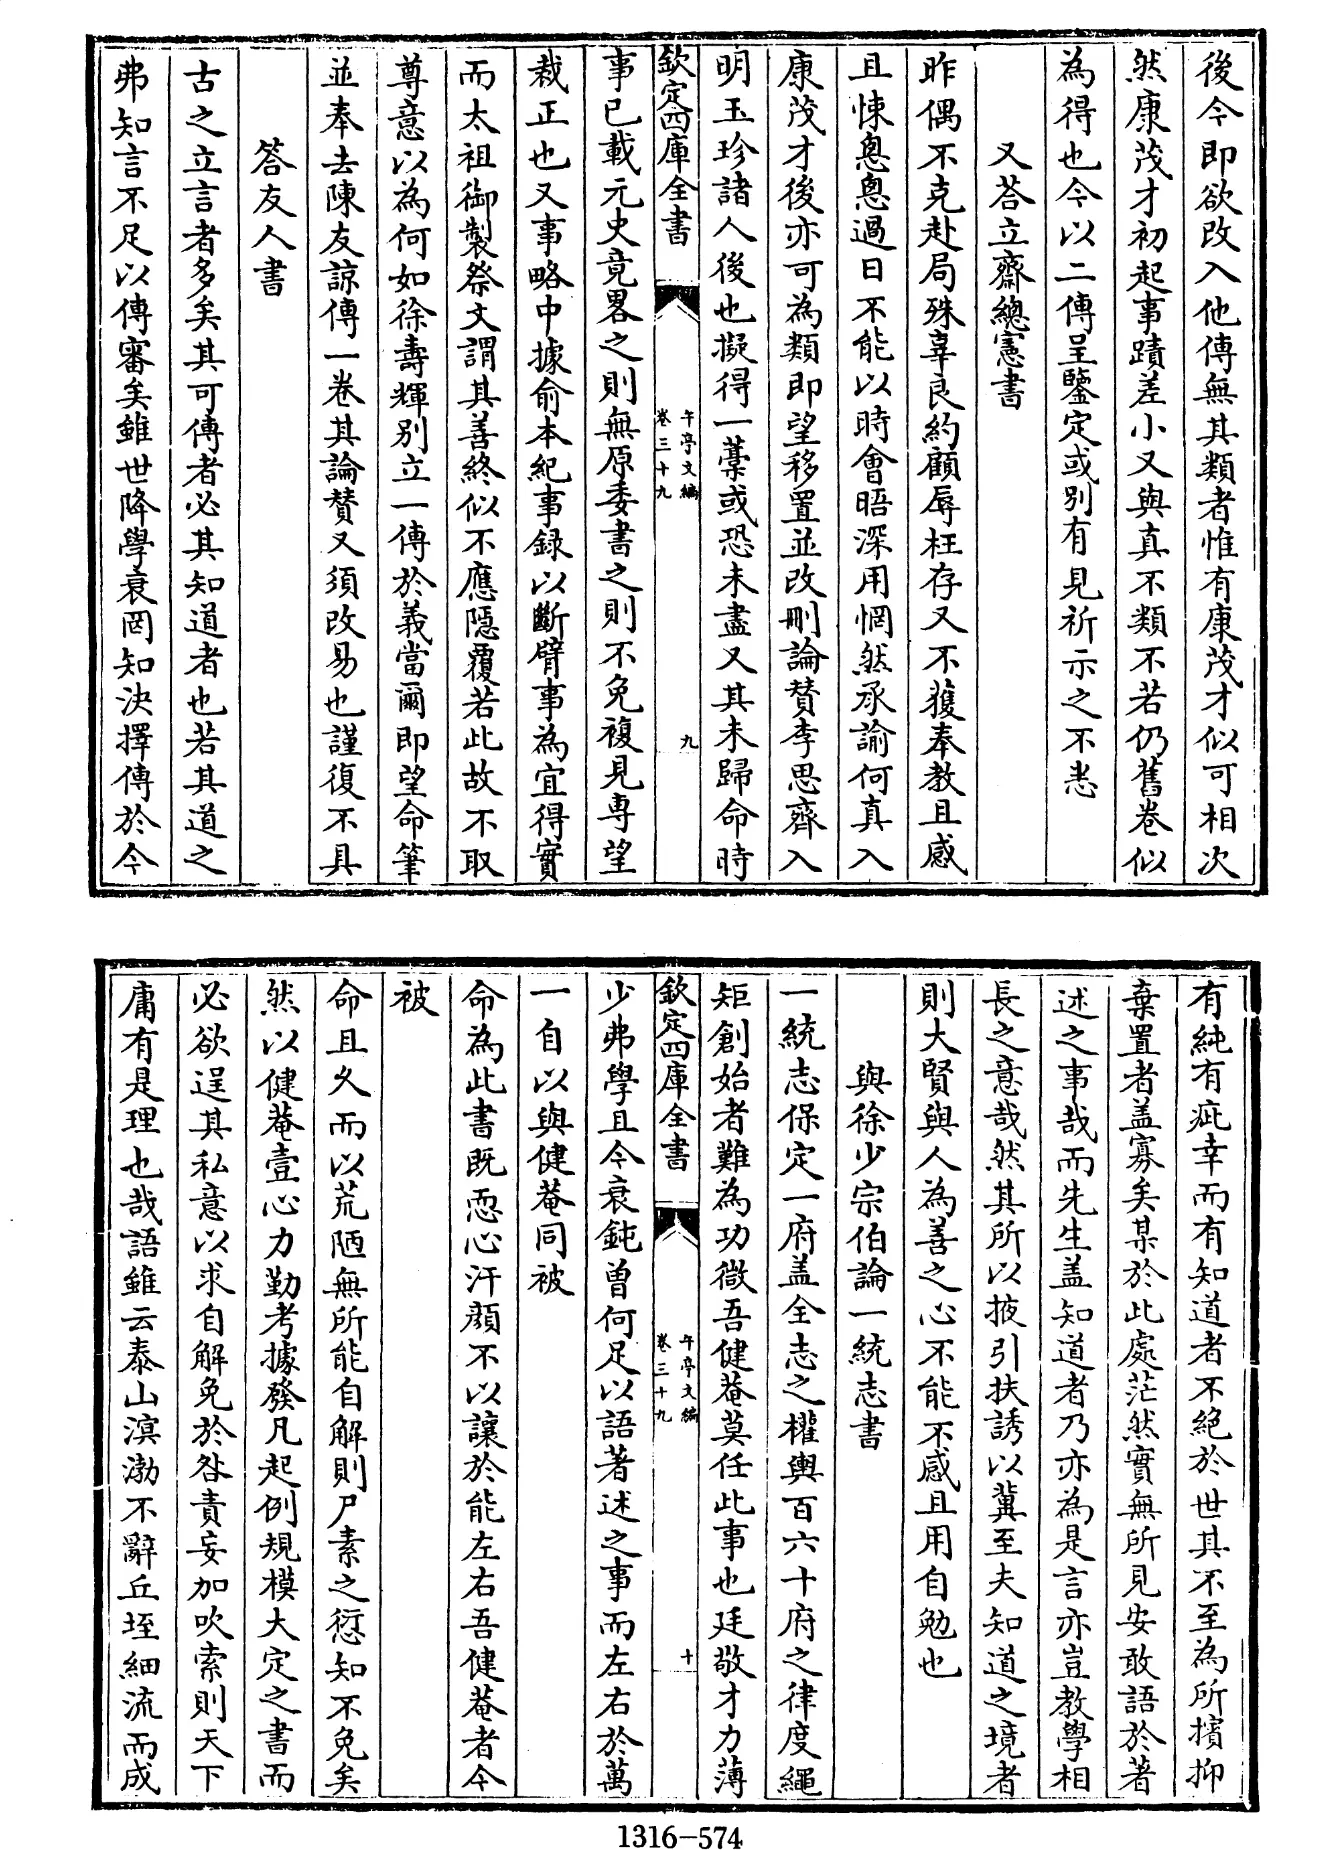 後今即欲改入他傳無其類者惟有康茂才似可相次
然康茂才初起事蹟差小又與真不類不若仍舊卷似
為得也今以二傳呈鑒定或別有見祈示之不恙
又荅立齋總憲書
昨偶不克赴局殊辜良約顧辱枉存又不獲奉教且感
且悚悤悤過日不能以時會晤深用惘然承諭何真入
康茂才後亦可為類即望移置並改刪論贊李思齊入
明玉珍諸人後也擬得一藁或恐未盡又其未歸命時
欽定四庫全書
午亭文編
卷三十九
九
事已載元史竟畧之則無原委書之則不免複見専望
裁正也又事略中據俞本紀事録以斷臂事為宜得實
而太祖御製祭文謂其善終似不應隱覆若此故不取
尊意以為何如徐壽輝别立一傳於義當爾即望命筆
並奉去陳友諒傳一卷其論贊又須改易也謹復不具
答友人書
古之立言者多矣其可傳者必其知道者也若其道之
弗知言不足以傳審矣雖世降學衰罔知決擇傳於今
有純有疵幸而有知道者不絶於世其不至為所擯抑
棄置者盖寡矣某於此處茫然實無所見安敢語於著
述之事哉而先生盖知道者乃亦為是言亦豈教學相
長之意哉然其所以掖引扶誘以冀至夫知道之境者
則大賢與人為善之心不能不感且用自勉也
與徐少宗伯論一統志書
一統志保定一府盖全志之權輿百六十府之律度繩
矩創始者難為功微吾健菴莫任此事也廷敬才力薄
欽定四庫全書
午亭文編
卷三十九
十
少弗學且今衰鈍曽何足以語著述之事而左右於萬
一自以與健菴同被
命為此書既恧心汗顔不以讓於能左右吾健菴者今
被
命且久而以荒陋無所能自解則尸素之愆知不免矣
然以健菴壹心力勤考據發凡起例規模大定之書而
必欲逞其私意以求自解免於咎責妄加吹索則天下
庸有是理也哉語雖云泰山溟渤不辭丘垤細流而成
1316-574